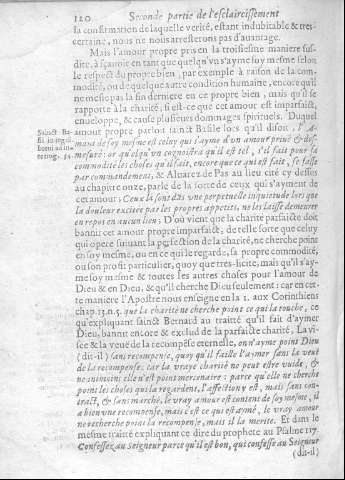 120 Seconde partie de l'esclaircissement
la confirmation de laquelle verité, estant indubitable & tres-
certaine, nous ne nous arresterons pas d'auantage.
Mais l'amour propre pris en la troisiesme maniere sus-
dite, à sçauoir en tant que quelqu'vn s'ayme soy mesme selon
le respect du propre bien, par exemple à raison de la com-
modité, ou de quelque autre condition humaine, encore qu'il
ne mesle pas la fin derniere en ce propre bien, mais qu'il se
rapporte à la charité, si est-ce que cet amour est imparfaict,
enueloppe, & cause plusieurs dommages spirituels. Duquel
amour propre parloit sainct Basile lors qu'il disoit, l'A-
mateur de soy mesme est celuy qui s'ayme d'vn amour priué &
mesuré: or quelqu'vn cognoistra qu'il est tel, s'il fait pour sa
commodité les choses qu'il fait, encore que ce qui est fait, se fasse
par commandement, & Aluarez de Pas au lieu cité cy dessus
au chapitre onze, parle de la sorte de ceux qui s'ayment de
cet amour; Ceux là sont dãs vne perpetuelle inquietude lors que
la douleur excitée par les propres appetits, ne les laisse demeurer
en repos en aucun lieu; D'où vient que la charité parfaicte doit
bannir cet amour propre imparfaict, de telle sorte que celuy
qui opere suiuant la perfection de la charité, ne cherche point
en soy mesme, ou en ce qui le regarde, sa propre commodité,
ou son profit particulier, quoy que tres-licite, mais qu'il s'ay-
me soy mesme & toutes les autres choses pour l'amour de
Dieu & en Dieu, & qu'il cherche Dieu seulement: car en cet-
te maniere l'Apostre nous enseigne en la 1. aux Corinthiens
chap. 13. n. 5. que la charité ne cherche point ce qui la touche, ce
qu'expliquant sainct Bernard au traitté qu'il fait d'aymer
Dieu, bannit encore & exclud de la parfaicte charité, La vi-
sée & la veuë de la recompense eternelle, on n'ayme point Dieu
(dit-il) sans recompense, quoy qu'il faille l'aymer sans la veuë
de la recompense, car la vraye charité ne peut estre vuide, &
neantmoins elle n'est point mercenaire: parce qu'elle ne cherche
point les choses qui la regardent, l'affection y est, mais sans con-
tract, & sans marché, le vray amour est content de soy mesme, il
a bien vne recompense, mais c'est ce qui est aymé, le vray amour
ne recherche point la recompense, mais il la merite. Et dans le
mesme traitté expliquant ce dire du prophete au Psalme 117.
Confessez au Seigneur parce qu'il est bon, qui confesse au Seigneur
(dit-il)
Sainct Ba-
sil. in regul.